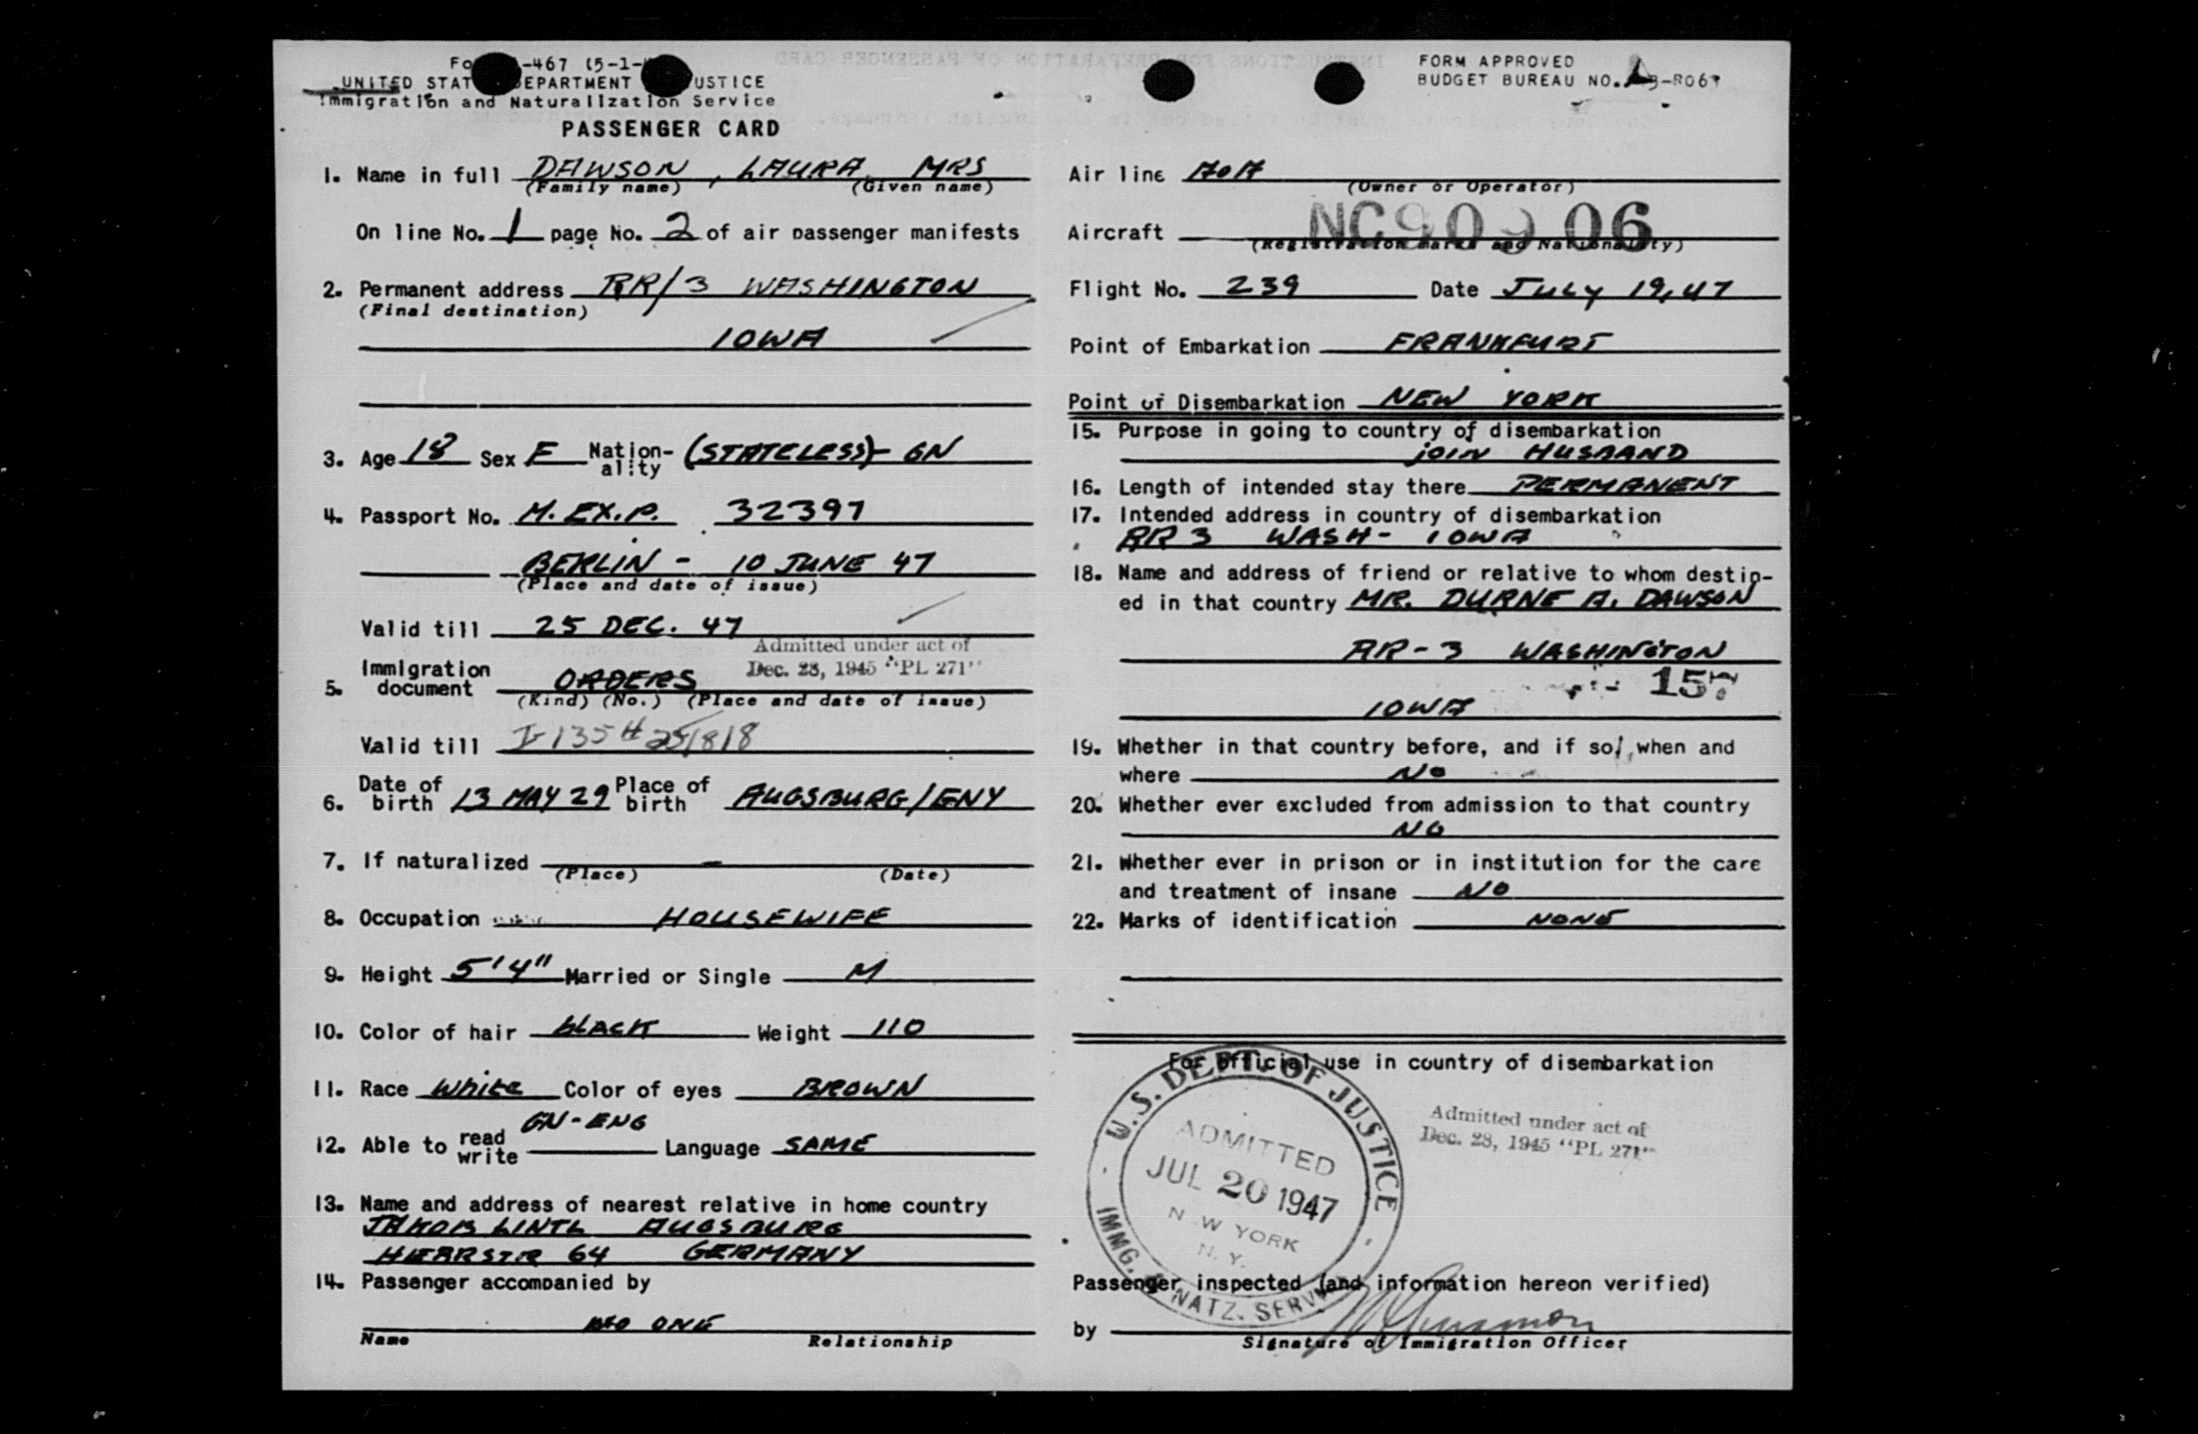 -467 (5-1-
UNITED STAT DEPARTMENT USTICE
Immigration and Naturalization Service
PASSENGER CARD
1. Name in full DAWSON, LAURA MRS
(Family name) (Given name)
On line No. 1 page No. 2 of air passenger manifests
2. Permanent address RR/3 WASHINGTON
(Final destination)
IOWA
3. Age 18 Sex F Nation-ality (STATELESS)- GN
4. Passport No. M. EX. P. 32397
BERLIN - 10 JUNE 47
(Place and date of issue)
Valid till 25 DEC. 47
Admitted under act of
Dec. 28, 1945 "PL 271"
5. Immigration document ORDERS
(Kind) (No.) (Place and date of issue)
Valid till I-135 # 25/818
6. Date of birth 13 MAY 29 Place of birth AUGSBURG/GNY
7. If naturalized -
(Place) (Date)
8. Occupation HOUSEWIFE
9. Height 5'4" Married or Single M
10. Color of hair BLACK Weight 110
11. Race White Color of eyes BROWN
GN-ENG
12. Able to read write Language SAME
13. Name and address of nearest relative in home country
JAKOB LINTL AUGSBURG
64 GERMANY
14. Passenger accompanied by
NO ONE
Name Relationship
FORM APPROVED
BUDGET BUREAU NO.
Air line AOA
(Owner or Operator)
Aircraft NC90906
(Registration marks and Nationality)
Flight No. 239 Date JULY 19, 47
Point of Embarkation FRANKFURT
Point of Disembarkation NEW YORK
15. Purpose in going to country of disembarkation
JOIN HUSBAND
16. Length of intended stay there PERMANENT
17. Intended address in country of disembarkation
RR 3 WASH- IOWA
18. Name and address of friend or relative to whom destin-
ed in that country MR. DURNE A. DAWSON
RR-3 WASHINGTON
157
IOWA
19. Whether in that country before, and if so, when and
where NO
20. Whether ever excluded from admission to that country
NO
21. Whether ever in prison or in institution for the care
and treatment of insane NO
22. Marks of identification NONE
For official use in country of disembarkation
U.S. DEPT. OF JUSTICE
ADMITTED
JUL 20 1947
N W YORK
N. Y.
IMMG. & NATZ. SERVICE
Admitted under act of
Dec. 28, 1945 "PL 271"
Passenger inspected (and information hereon verified)
by
Signature of Immigration Officer